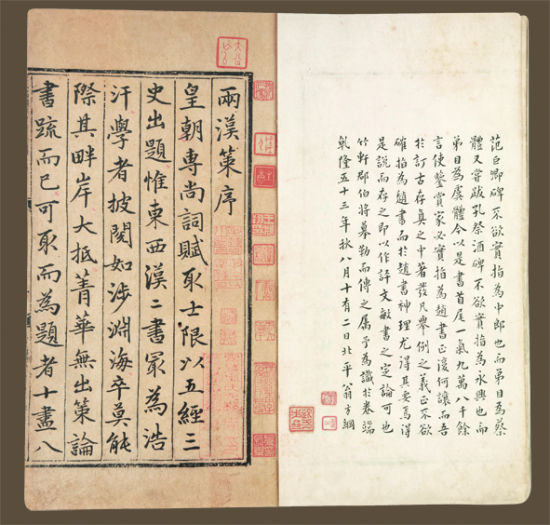 范巨卿碑不欲實指為中郎也而第目為蔡
體又嘗跋孔祭酒碑不欲實指為永興也而
第目為虞體今以是書首尾一氣九萬八千餘
言使鑒賞家必實指為趙書正復何讓而吾
於訂古存真之中著發凡舉例之義正不欲
確指為趙書而於趙書神理尤得其要焉得
是說而存之即以作許文敏書之定論可也
竹軒郡伯將摹勒而傳之属予為識於卷端
乾隆五十三年秋八月十有二日北平翁方綱
兩漢策序
皇朝專尚詞賦取士限以五經三
史出題惟東西漢二書冣為浩
汗學者披閱如涉淵海卒莫能
際其畔岸大抵菁華無出策論
書疏而已可取而為題者十盡八